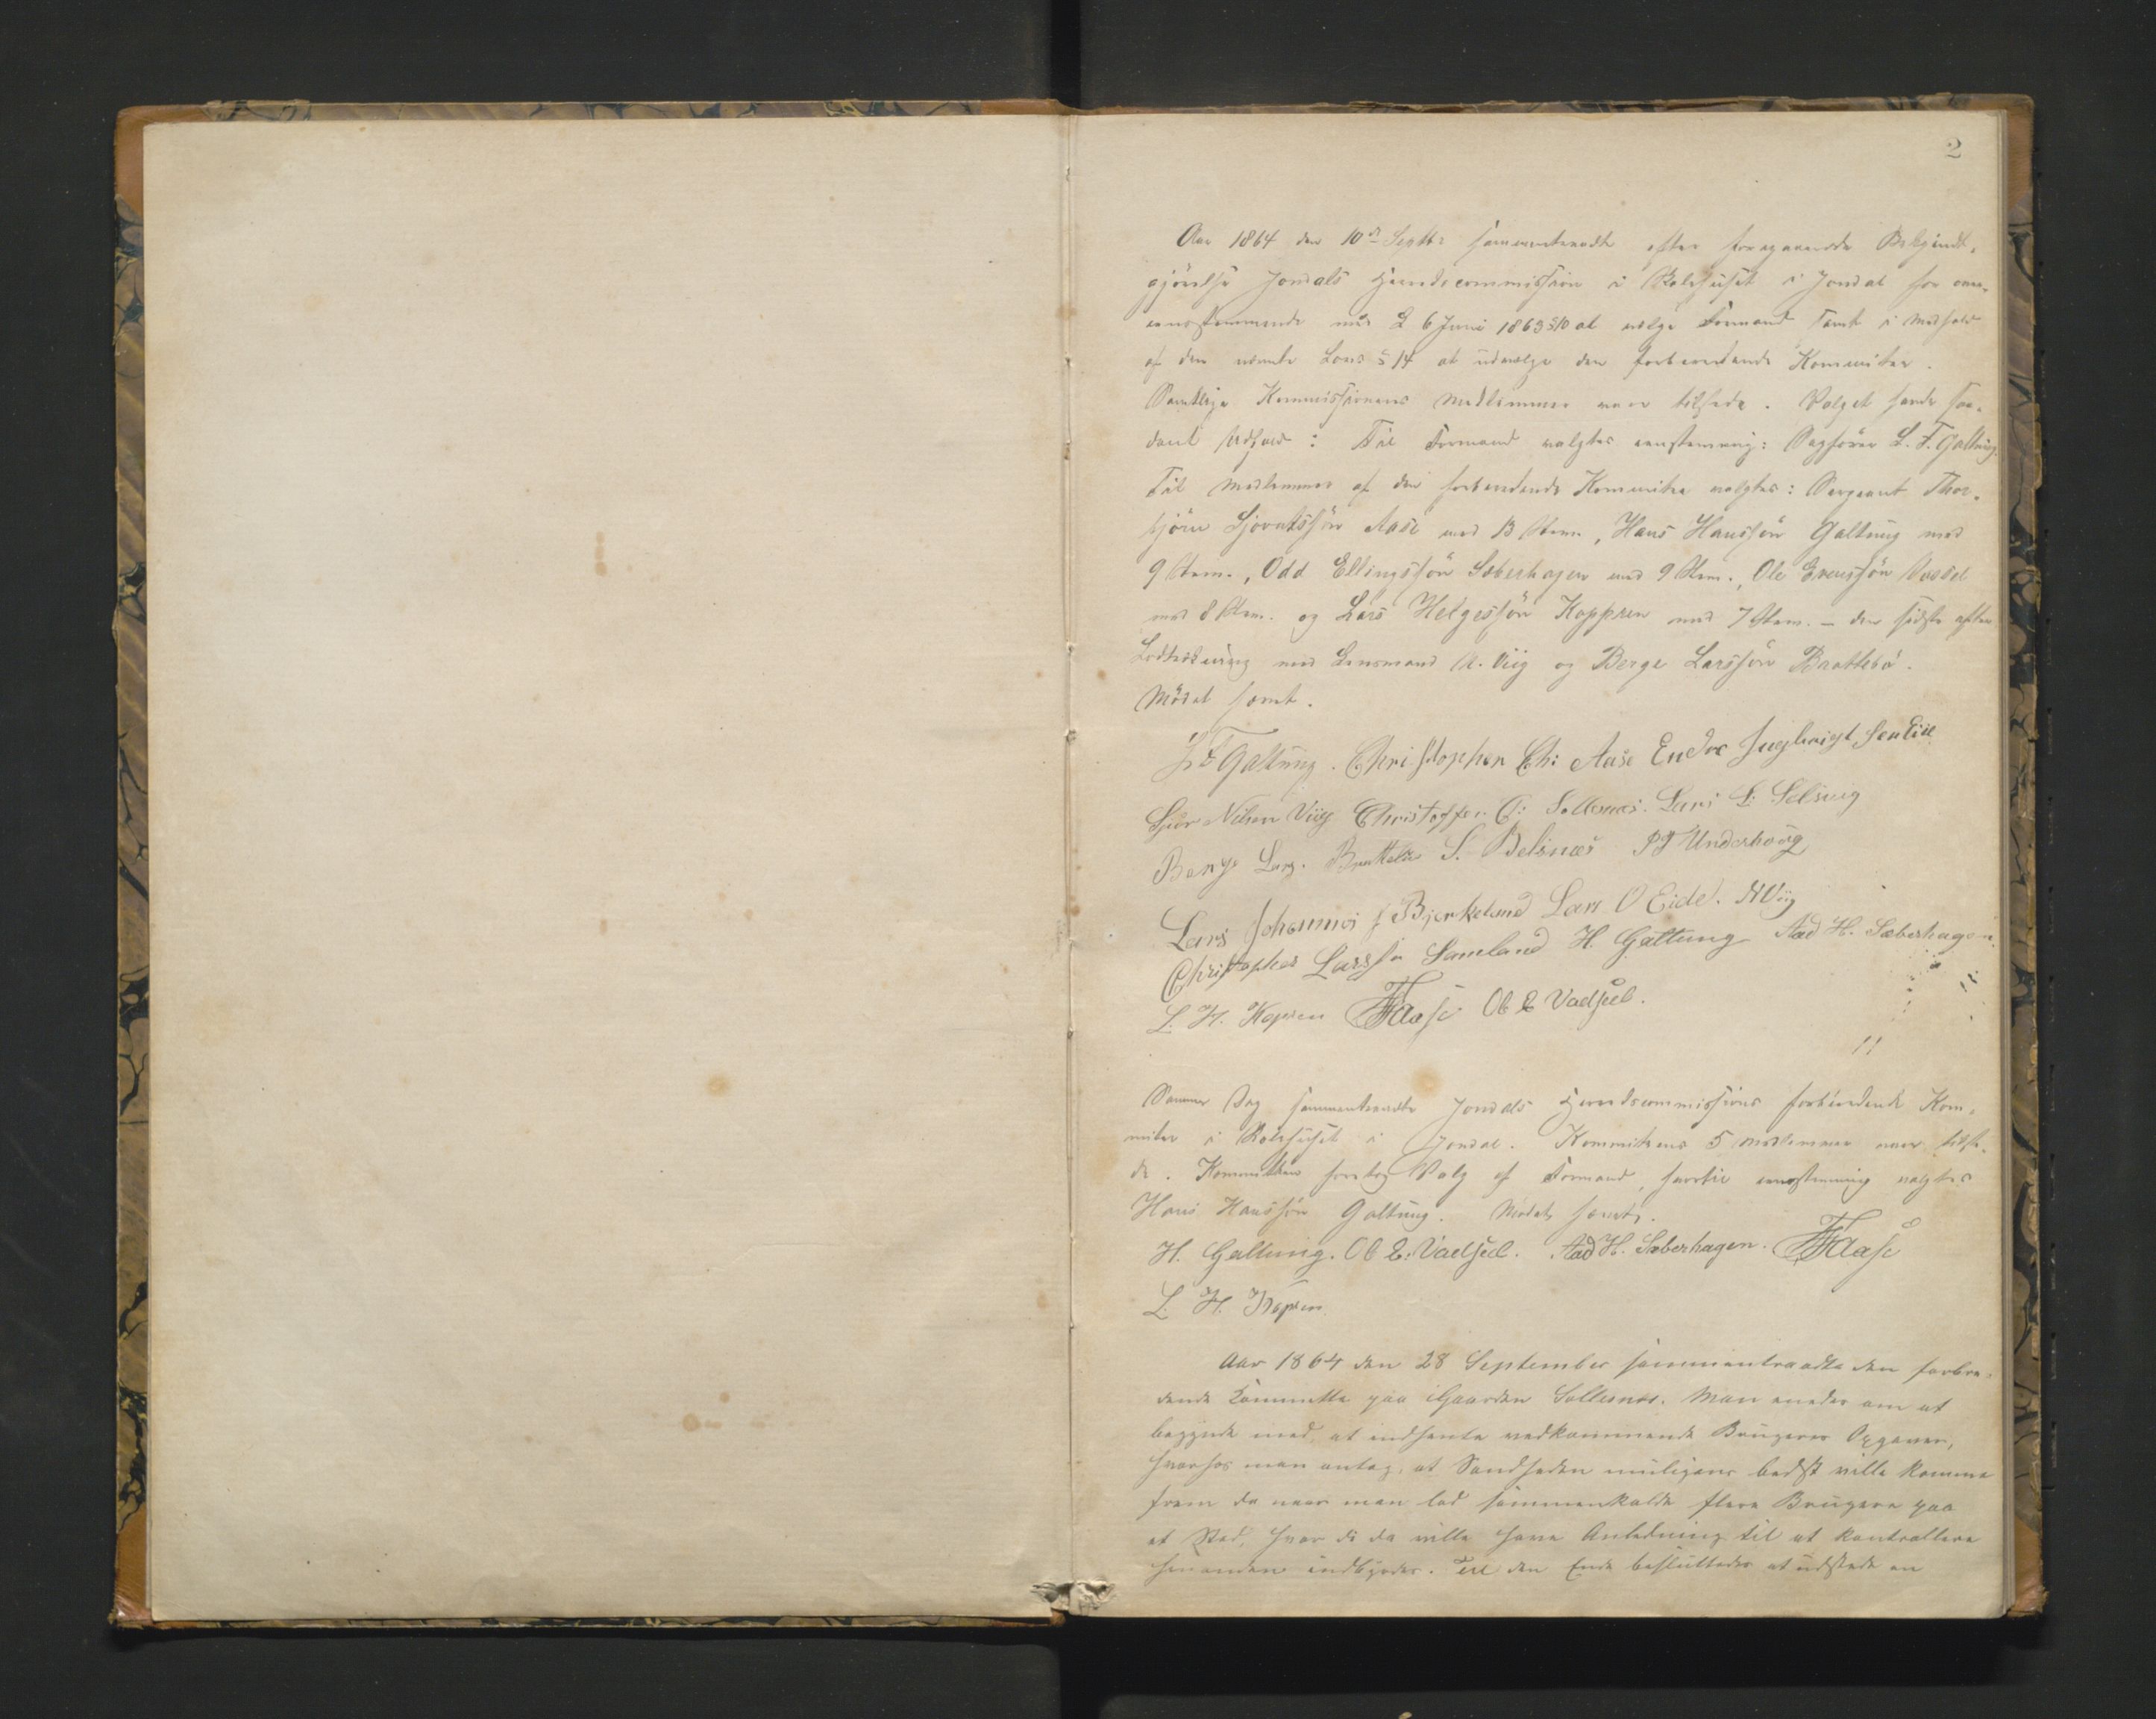 2
Aar 1864 den 10de Septbr sammentraadte efter foregaaende Bekjendt-
gjörelse Jondals Herredscommission i Skolehuset i Jondal for over-
eensstemmende med L 6 Juni 1863 § 10 at vælge Formand samt i Medhold
af den nævnte Lovs § 14 at udvælge den forberedende Kommitee.
Samtlige Kommissionens Medlemmer vare tilstede. Valget havde saa-
dant Udfald: Til Formand valgtes eenstemmig: Sagförer L. F. Galtung.
Til Medlemmer af den forberedende Kommitee valgtes: Sergeant Thor-
björn Sjovatssön Aase med 13 Stem., Hans Hanssön Galtung med
9 Stem., Odd Ellingssön Sæberhagen med 9 Stem., Ole Evenssön Vassel
med 8 Stem. og Lars Helgessön Koppren med 7 Stem. – den sidste efter
Lodtrækning med Lensmand N. Viig og Berge Larssön Brattebö.
Mödet hævet.
L F Galtung. Christopher Ch: Aase Endre Ingbrigtsen Eiie
Sjur Nilsen Viig Christoffer O: Solesnæs. Lars L: Selsvig
Berge Lars. Brattebö S. Belsnæs P J Underhoug
Lars Johannes s Bjerkeland Lars O Eide. N Viig
Christopher Larss Samland H. Galtung Aad H. Sæberhagen.
L. H. Kopren Aase Ol E Vadsel.
Samme Dag sammentraadte Jondals Herredscommissions forberedende Kom-
mitee i Skolehuset i Jondal. Kommiteens 5 Medlemmer vare tilste-
de. Kommiteen foretog Valg af Formand, hvortil eenstemmig valgtes
Hans Hanssön Galtung. Mödet hævet.
H. Galtung. Ol E: Vadsel. Aad H. Sæberhagen. Aase
L. H. Kopren
Aar 1864 den 28 September sammentraadte den forbere-
dende Committe paa Gaarden Solesnes. Man enedes om at
begynde med at indhente vedkommende Brugeres Opgaver,
hvorhos man antog, at Sandheden muligens bedst ville komme
frem da naar man lod sammenkalde flere Brugere paa
et Sted, hvor de da ville have Anledning til at kontrollere
hinanden indbyrdes. Til den Ende besluttedes at udstede en